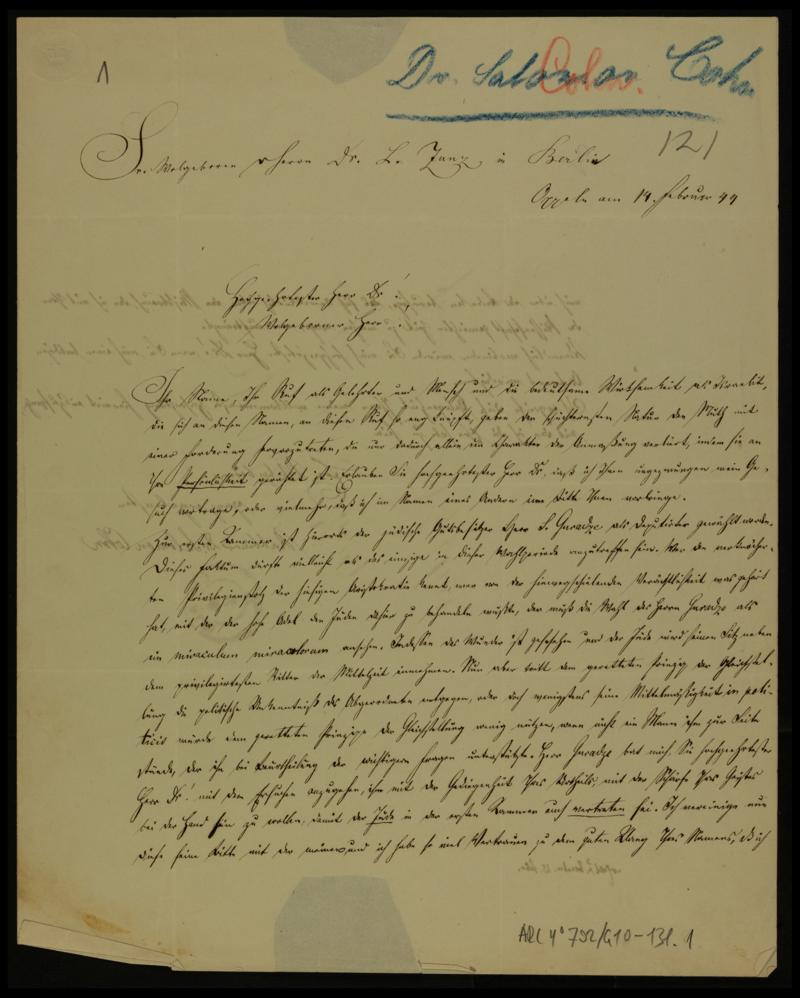 1
Dr. Salomon Cohn
Cohn.
121
Sr. Wolgeboren Herrn Dr. L. Zunz in Berlin
Oppeln am 14. Februar 49
Hochgeehrtester Herr Dr!
Wolgeborner Herr!
Ihr Name, Ihr Ruf als Gelehrter und Mensch und die bedeutsame Wirksamkeit als Israelit,
die sich an diesen Namen, an diesen Ruf so eng knüpft, geben der schüchternsten Natur den Muth mit
einer Forderung hervorzutreten, die nur dadurch allein den Charakter der Anmaßung verliert, indem sie an
Ihre Persönlichkeit gerichtet ist. Erlauben Sie hochgeehrtester Herr Dr, daß ich Ihnen ungezwungen mein Ge-
such vortrage, oder vielmehr, daß ich im Namen eines Andern eine Bitte Ihnen vorbringe.
Zur ersten Kammer ist hierorts der jüdische Gutsbesitzer Herr S. Guradze als Deputirter gewählt worden.
Dieses Faktum dürfte vielleicht als das einzige in dieser Wahlperiode anzutreffen sein. Wer den verknöcher-
ten Privilegienstolz der hiesigen Aristokratie kennt, wer von der hinwegschielenden Verächtlichkeit was gehört
hat, mit der der hohe Adel den Juden daher zu behandeln wußte, der muß die Wahl des Herrn Guradze als
ein miraculum miraculorum ansehen. Indessen das Wunder ist geschehen und der Jude wird seinen Sitz neben
dem privilegirtesten Ritter der Mittelzeit einnehmen. Nun aber tritt dem geretteten Prinzip der Gleichstel-
lung die politische Unkenntniß des Abgeordneten entgegen, oder doch wenigstens seine Mittelmäßigkeit in poli-
ticis würde dem geretteten Prinzipe der Gleichstellung wenig nützen, wenn nicht ein Mann ihm zur Seite
stünde, der ihn bei Beurtheilung der wichtigern Fragen unterstützte. Herr Guradze bat mich, Sie hochgeehrtester
Herr Dr! mit dem Ersuchen anzugehen, ihm mit der Gediegenheit Ihres Urtheils, mit der Schärfe Ihres Geistes
bei der Hand sein zu wollen, damit der Jude in der ersten Kammer auch vertreten sei. Ich vereinige nun
diese seine Bitte mit der meinen und ich habe so viel Vertrauen zu dem guten Klang Ihres Namens, daß ich
ARC 4° 792/G10-131.1